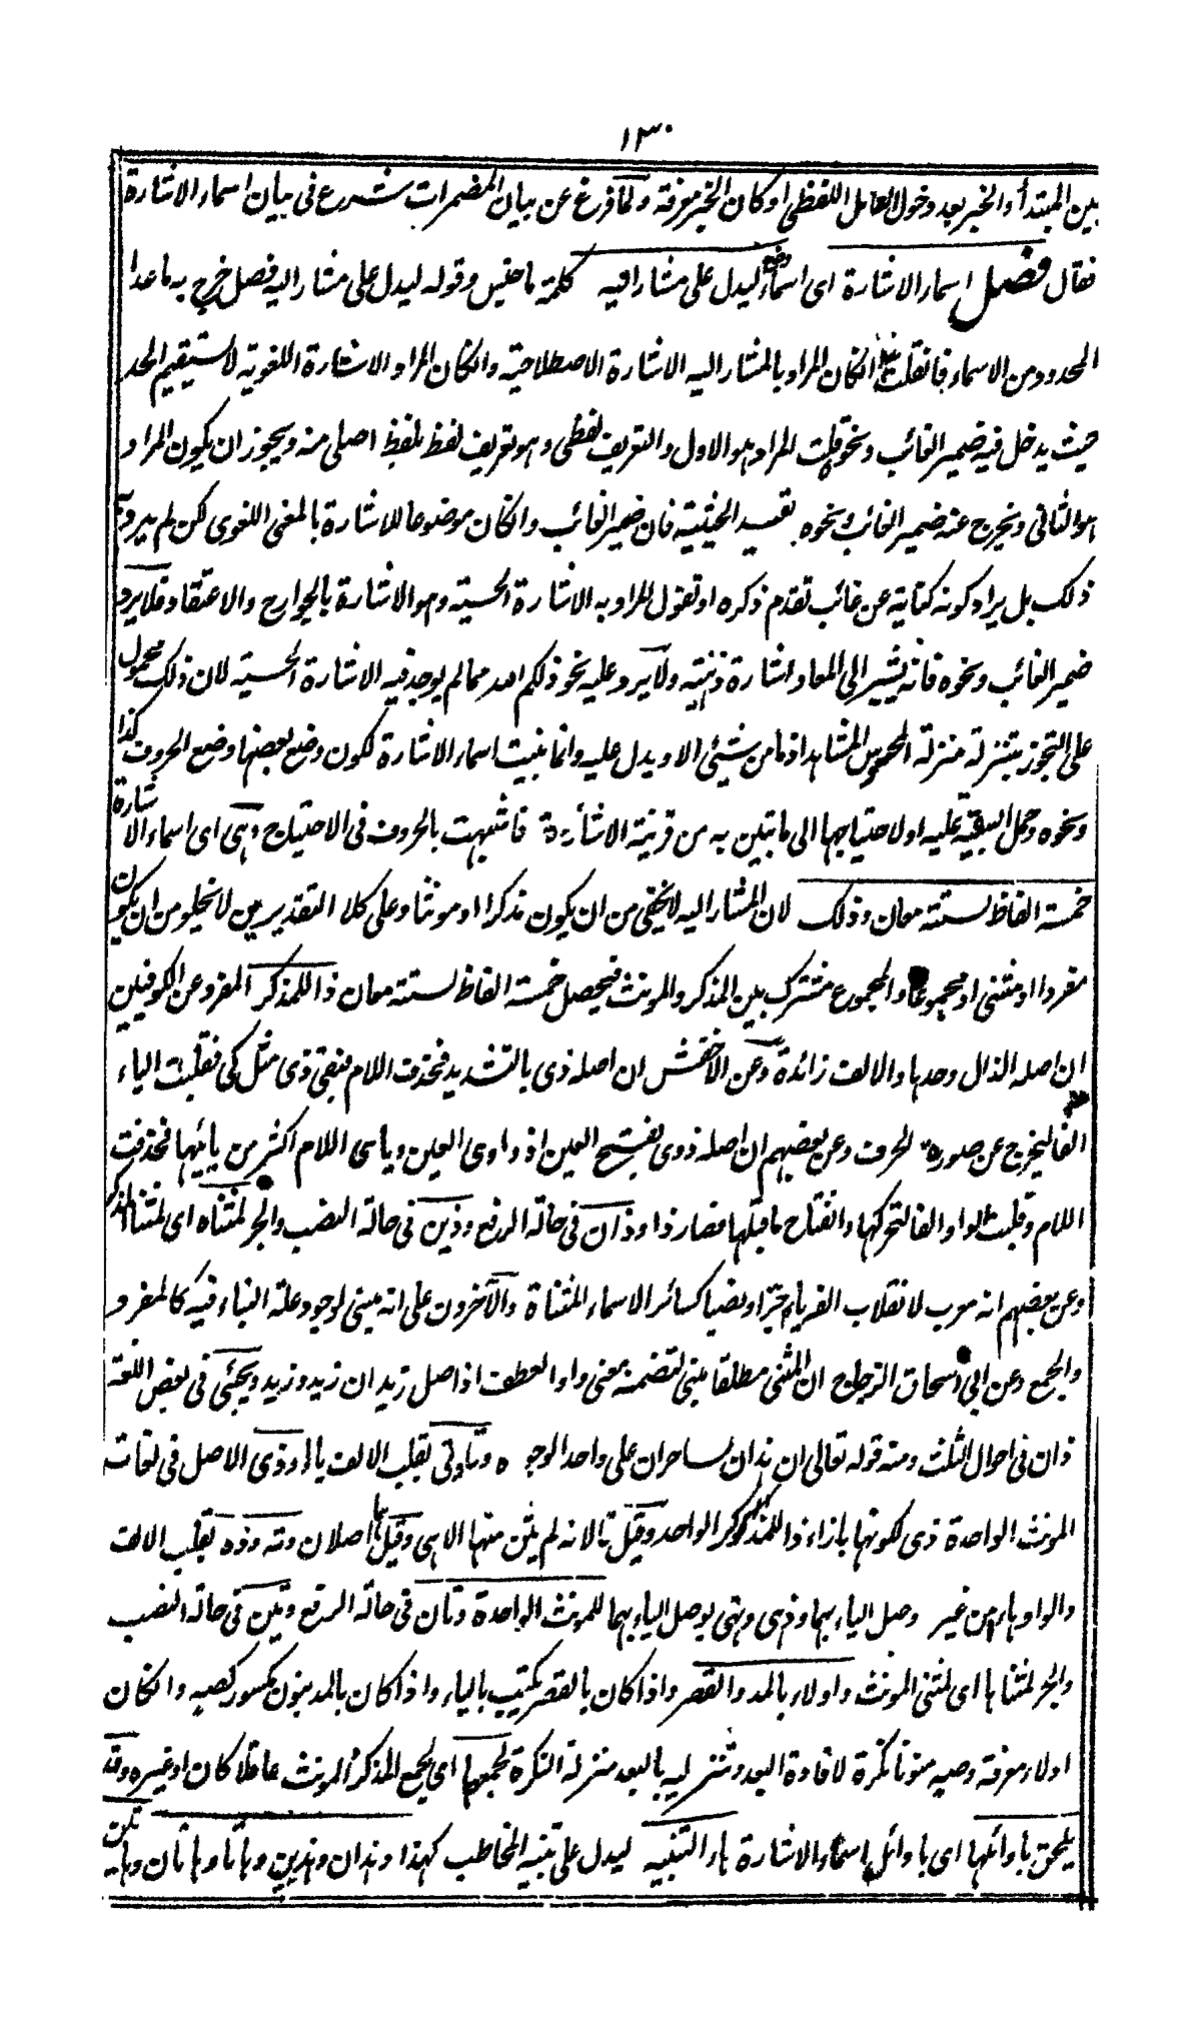 ١٣٠
بين المبتدأ والخبر بعد دخول العامل اللفظى او كان الخبر معرفة ولما فرغ عن بيان المضمرات شرع فى بيان اسماء الاشارة
فقال فصل اسماء الاشارة اى اسماء وضع ليدل على مشار اليه كلمة ما جنس وقوله ليدل على مشار اليه فصل خرج به ما عدا
المحدود من الاسماء فان قلت ان كان المراد بالمشار اليه الاشارة الاصطلاحية وان كان المراد الاشارة اللغوية لا يستقيم الحد
حيث يدخل فيه ضمير الغائب ونحوه قلت المراد هو الاول والتعريف لفظى وهو تعريف لفظ بلفظ اصلى منه ويجوز ان يكون المراد
هو الثانى ويخرج عنه ضمير الغائب ونحوه بقيد الحيثية فان ضمير الغائب وان كان موضوعا للاشارة بالمعنى اللغوى لكن لم يرد به
ذلك بل يراد كونه كناية عن غائب تقدم ذكره او تقول المراد به الاشارة الحسية وهو الاشارة بالجوارح والاعتقاد فلا يرد
ضمير الغائب ونحوه فانه يشير الى المعاد اشارة ذهنية ولا يرد عليه نحو ذلكم الله مما لم يوجد فيه الاشارة الحسية لان ذلك محمول
على التجوز بتنزله منزلة المحسوس المشاهد اذ ما من شيئ الا ويدل عليه وانما بنيت اسماء الاشارة لكون وضع بعضها وضع الحروف كذا
ونحوه وحمل البقية عليه او لاحتياجها الى ما تبين به من قرينة الاشارة فاشبهت بالحروف فى الاحتياج وهى اى اسماء الاشارة
خمسة الفاظ لستة معان وذلك لان المشار اليه لا يخفى من ان يكون مذكرا او مونثا وعلى كلا التقديرين لا يخلو من ان يكون
مفردا او مثنى او مجموعا والمجموع مشترك بين المذكر والمونث فيحصل خمسة الفاظ لستة معان ذا للمذكر المفرد عن الكوفيين
ان اصله الذال وحدها والالف زائدة وعن الاخفش ان اصله ذى بالتشديد فحذفت اللام فبقى ذى مثل كى فقلبت الياء
الفا ليخرج عن صورة الحرف وعن بعضهم ان اصله ذوى بفتح العين اذ واوى العين ويائى اللام اكثر من يائيها فحذفت
اللام وقلبت الواو الفا لتحركها وانفتاح ما قبلها فصار ذا وذان فى حالة الرفع وذين فى حالة النصب والجر لمثناه اى لمثنا المذكر
وعن بعضهم انه معرب لانقلاب الفه ياء جرا ونصبا كسائر الاسماء المثناة والآخرون على انه مبنى لوجود علة البناء فيه كالمفرد
والجمع وعن ابى اسحاق الزجاج ان المثنى مطلقا مبنى لتضمنه معنى واو العطف اذ اصل زيدان زيد وزيد ويجئى فى بعض اللغة
ذان فى احوال الثلث ومنه قوله تعالى ان هذان لساحران على واحد الوجوه وتا وتى بقلب الالف يا وذى الاصل فى لغات
المونث الواحدة ذى لكونها بازاء ذا للمذكر الواحد وقيل تا لانه لم يثن منها الا هى وقيل هما اصلان وته وذه بقلب الالف
والواو هاء من غير وصل الياء بهما وذهى وتهى بوصل الياء بهما للمونث الواحدة وتان فى حالة الرفع وتين فى حالة النصب
والجر لمثناها اى لمثنى المونث واولاء بالمد والقصر واذا كان بالقصر يكتب بالياء واذا كان بالمد ينون كمسور كصيه وان كان
اولاء معرفة وصيه منونا نكرة لافادة البعد وتنزيله بالبعد منزلة النكرة لجمعهما اى لجمع المذكر والمونث عاقلا كان او غيره وقد
يلحق باوائلها اى باوائل اسماء الاشارة هاء التنبيه ليدل على تنبيه المخاطب كهذا وهذان وهذين وهاتا وهاتان وهاتين